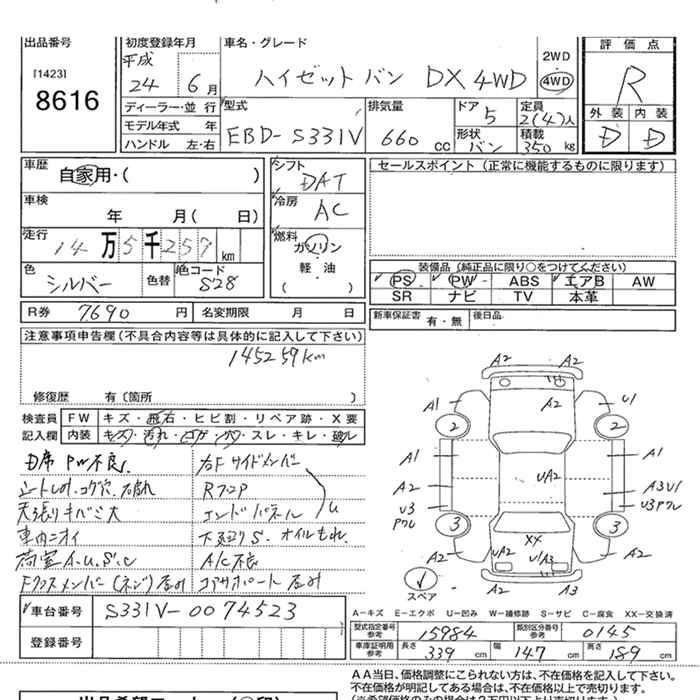 出品番号
[1423]
8616
初度登録年月
平成
24 6月
車名・グレード
ハイゼットバン DX 4WD
2WD
4WD
評価点
R
外装 内装
D D
ディーラー・並行
モデル年式 年
ハンドル 左・右
型式
EBD-S331V
排気量
660 cc
ドア
5
形状
バン
定員
2(4)人
積載
350kg
車歴
自家用・( )
車検
年 月( 日)
走行
14万5千257km
色
シルバー
色替
色コード
S28
シフト
DAT
冷房
AC
燃料
ガソリン
軽油
( )
セールスポイント(正常に機能するものに限ります)
装備品(純正品に限り○をつけてください)
PS PW ABS エアB AW
SR ナビ TV 本革
R券 7690円
名変期限 月 日
新車保証書 有・無
後日品
注意事項申告欄(不具合内容等は具体的に記入して下さい)
145259km
修復歴 有〔箇所 〕
検査員
記入欄
FW キズ・飛石・ヒビ割・リペア跡・X要
内装 キズ・汚れ・コゲ・穴・スレ・キレ・破レ
D席 PW不良
シートヒレ・コゲ穴・破れ
天張りキバミ大
車内ニオイ
荷室A.U.S.C
Fクロスメンバー(ネジ)歪み
右Fサイドメンバー
Rフロア
エンドパネル
U
下廻りS. オイルもれ.
A/C不良
コアサポート歪み
A2 A2
A1 A2 U1
2 2
A1 A1
A2 UA2 A3U1
U3 U3Pワレ
Pワレ
3 3
XX
A2 UA2 U1A3 A2
A2 A3
スペア
A-キズ E-エクボ U-凹み W-補修跡 S-サビ C-腐食 XX-交換済
車台番号 S331V-0074523
登録番号
型式指定番号
参考
15984
類別区分番号
参考
0145
車庫証明用
参考
長さ 339cm
幅 147cm
高さ 189cm
AA当日、価格調整にこられない方は、不在価格を記入して下さい。
不在価格が明記してある場合は、不在価格以上で売却します。